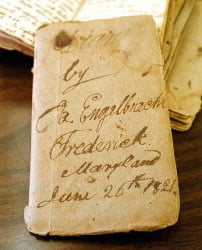 by
Ja. Engelbrecht
Frederick
Maryland
June 26th 1821